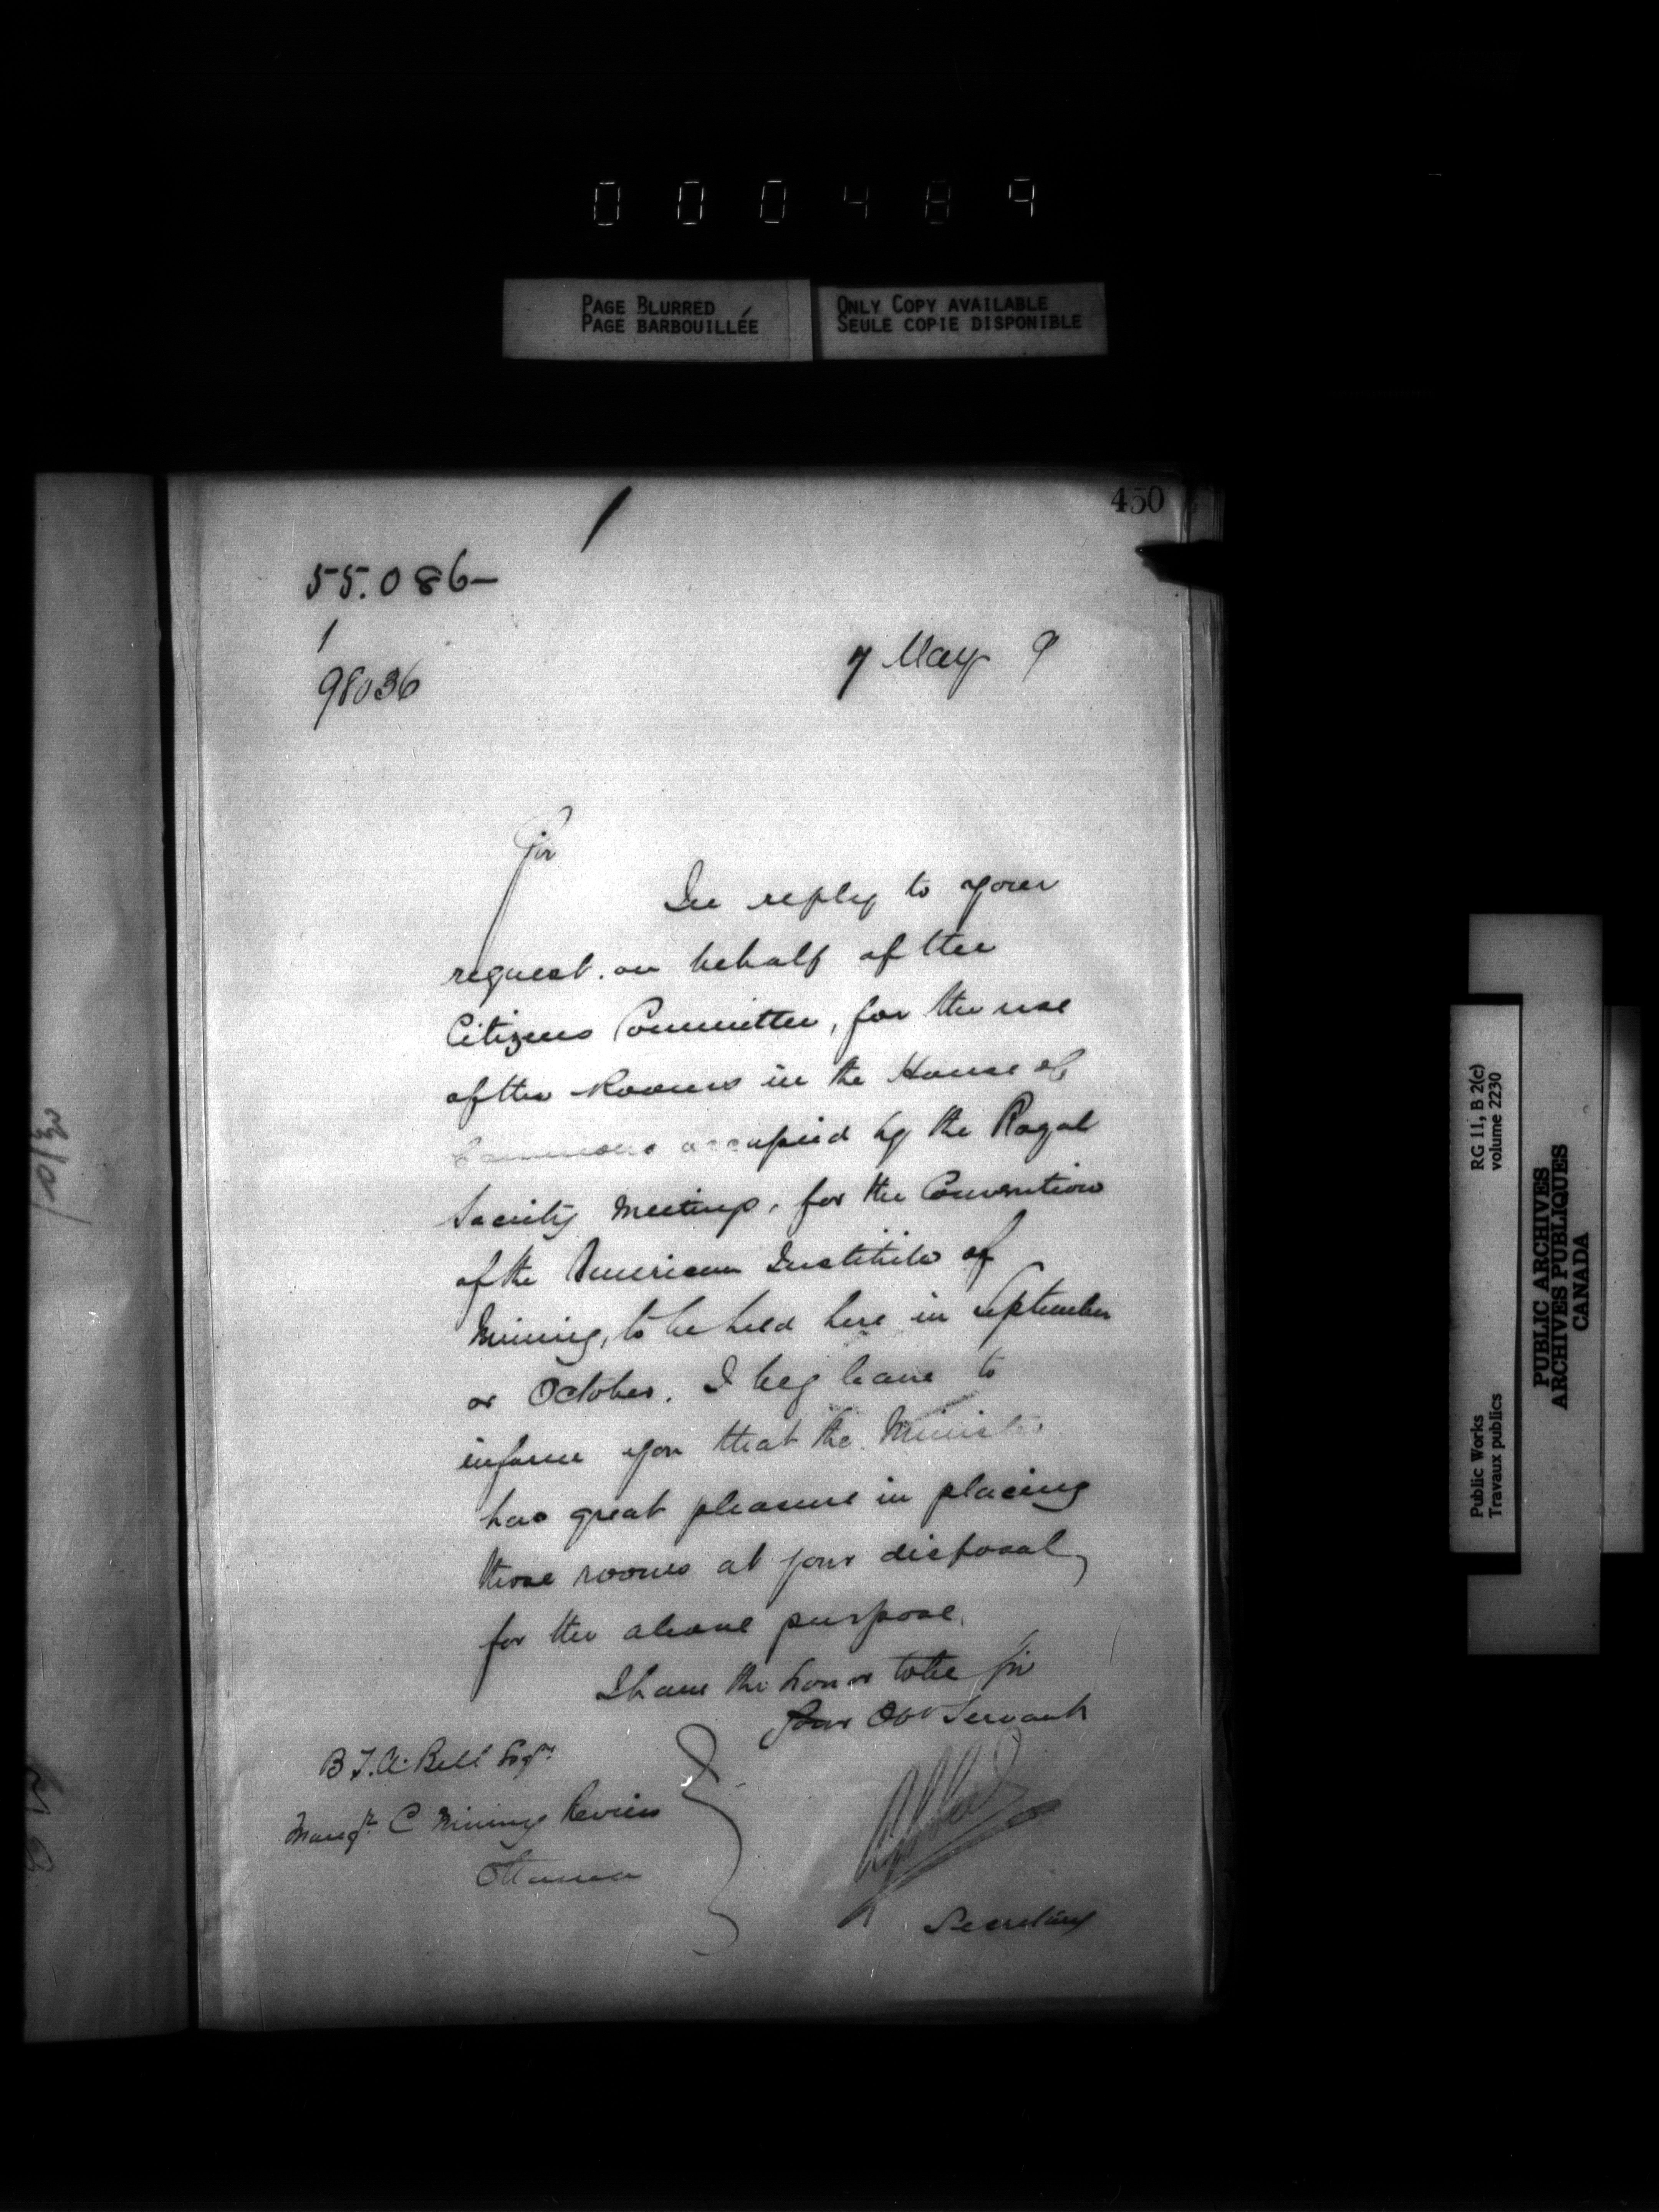 000489
PAGE BLURRED
PAGE BARBOUILLÉE
ONLY COPY AVAILABLE
SEULE COPIE DISPONIBLE
450
55.086-
1
98036
7 May 9
Sir
In reply to your
request on behalf of the
Citizens Committee, for the use
of the Rooms in the House of
Commons occupied by the Royal
Society Meetings, for the Convention
of the American Institute of
Mining, to be held here in September
or October. I beg leave to
inform you that the Minister
has great pleasure in placing
those rooms at your disposal,
for the above purpose.
I have the honor to be Sir
Your Obt Servant
B.T.A. Bell Esqre
Mangr C Mining Review
Ottawa
Secretary
Public Works
Travaux publics
RG 11, B 2(c)
volume 2230
PUBLIC ARCHIVES
ARCHIVES PUBLIQUES
CANADA